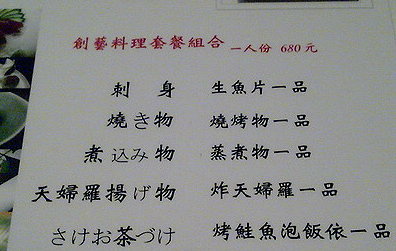 創藝料理套餐組合 一人份 680元
刺身 生魚片一品
燒き物 燒烤物一品
煮込み物 蒸煮物一品
天婦羅揚げ物 炸天婦羅一品
さけお茶づけ 烤鮭魚泡飯依一品